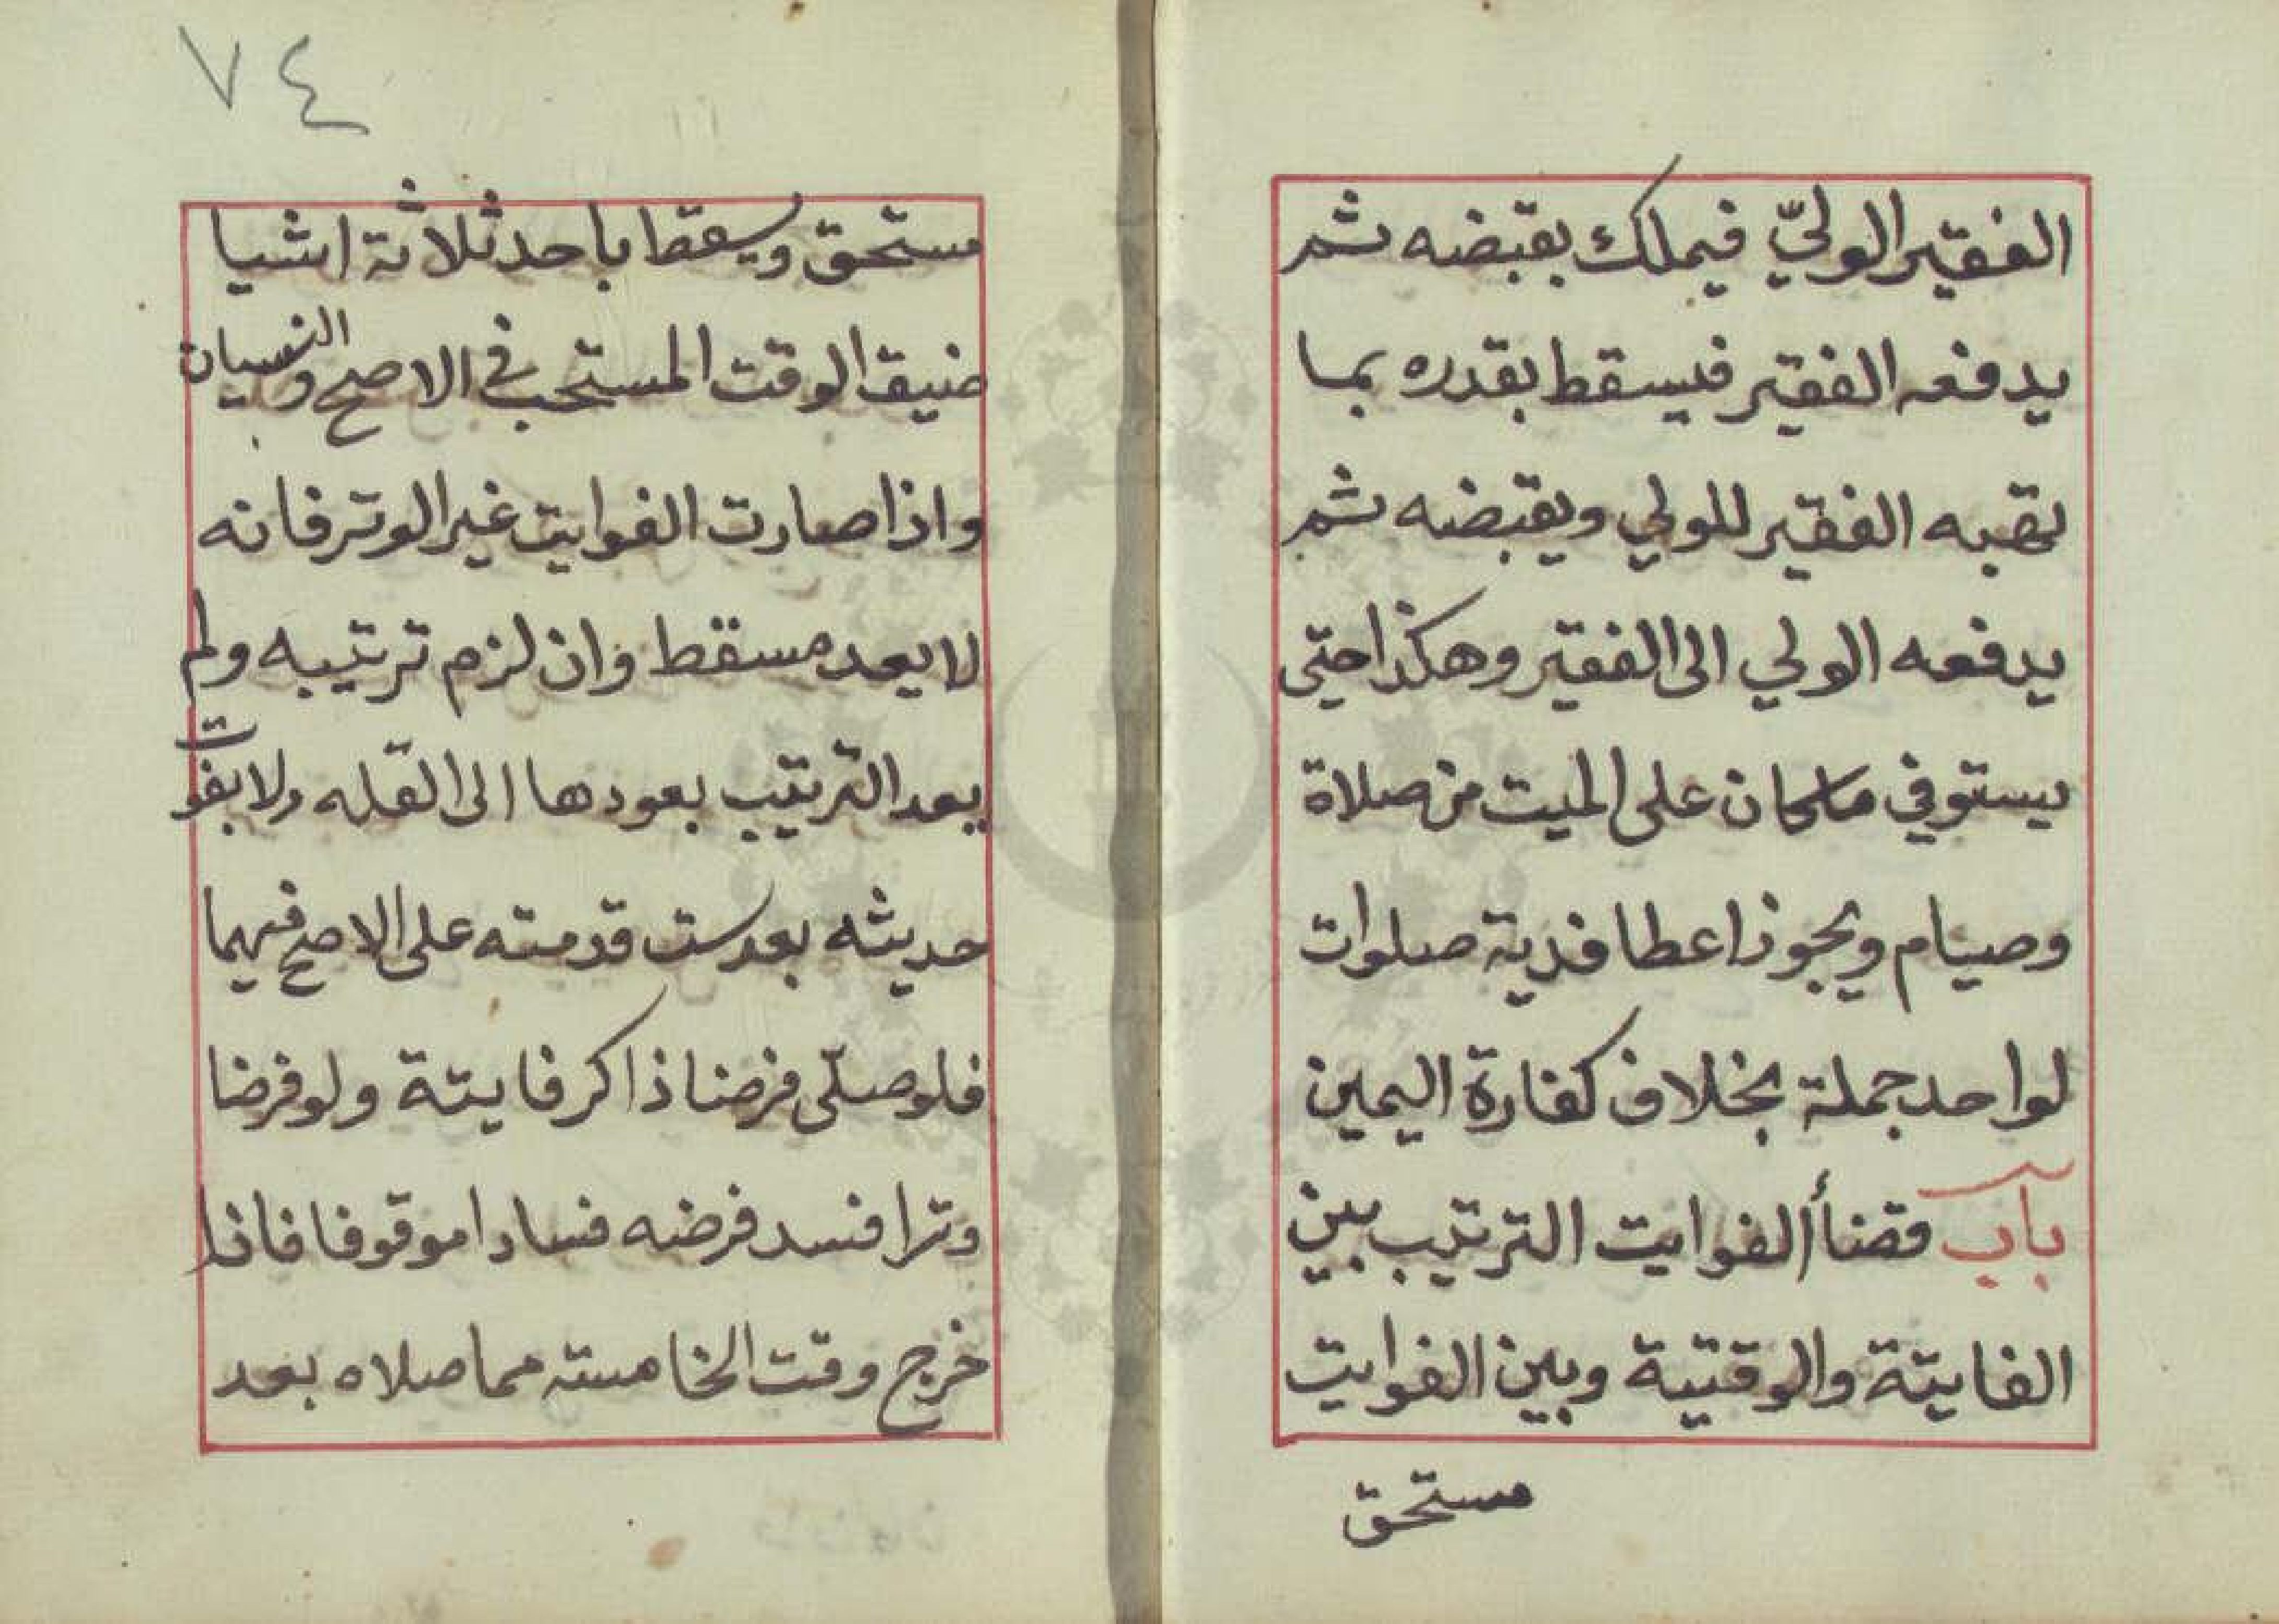 الفقير الولي فيملك بقبضه ثم
يدفعه الفقير فيسقط بقدره بما
يقبه الفقير للولي ويقبضه ثم
يدفعه الولي الى الفقير وهكذا حتى
يستوفي ماكان على الميت من صلاة
وصيام ويجوز اعطا فدية صلوات
لواحد جملة بخلاف كفارة اليمين
باب قضأ الفوايت الترتيب بين
الفايتة والوقتية وبين الفوايت
مستحق
٧٤
مستحق ويسقط باحد ثلاثة اشيا
ضيق الوقت المستحب في الاصح والنسيان
واذا صارت الفوايت غير الوتر فانه
لا يعد مسقط وان لزم ترتيبه ولم
يعد الترتيب بعودها الى القله ولا بفوت
حديثه بعد ست قدمته على الاصح فيهما
فلو صلّى فرضا ذاكر فايتة ولو فرضا
وترا فسد فرضه فسادا موقوفا فاذا
خرج وقت الخامسته مما صلاه بعد